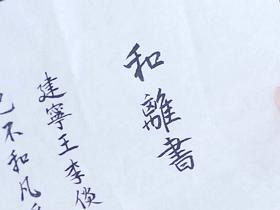 和離書
建寧王李倓
已不和凡